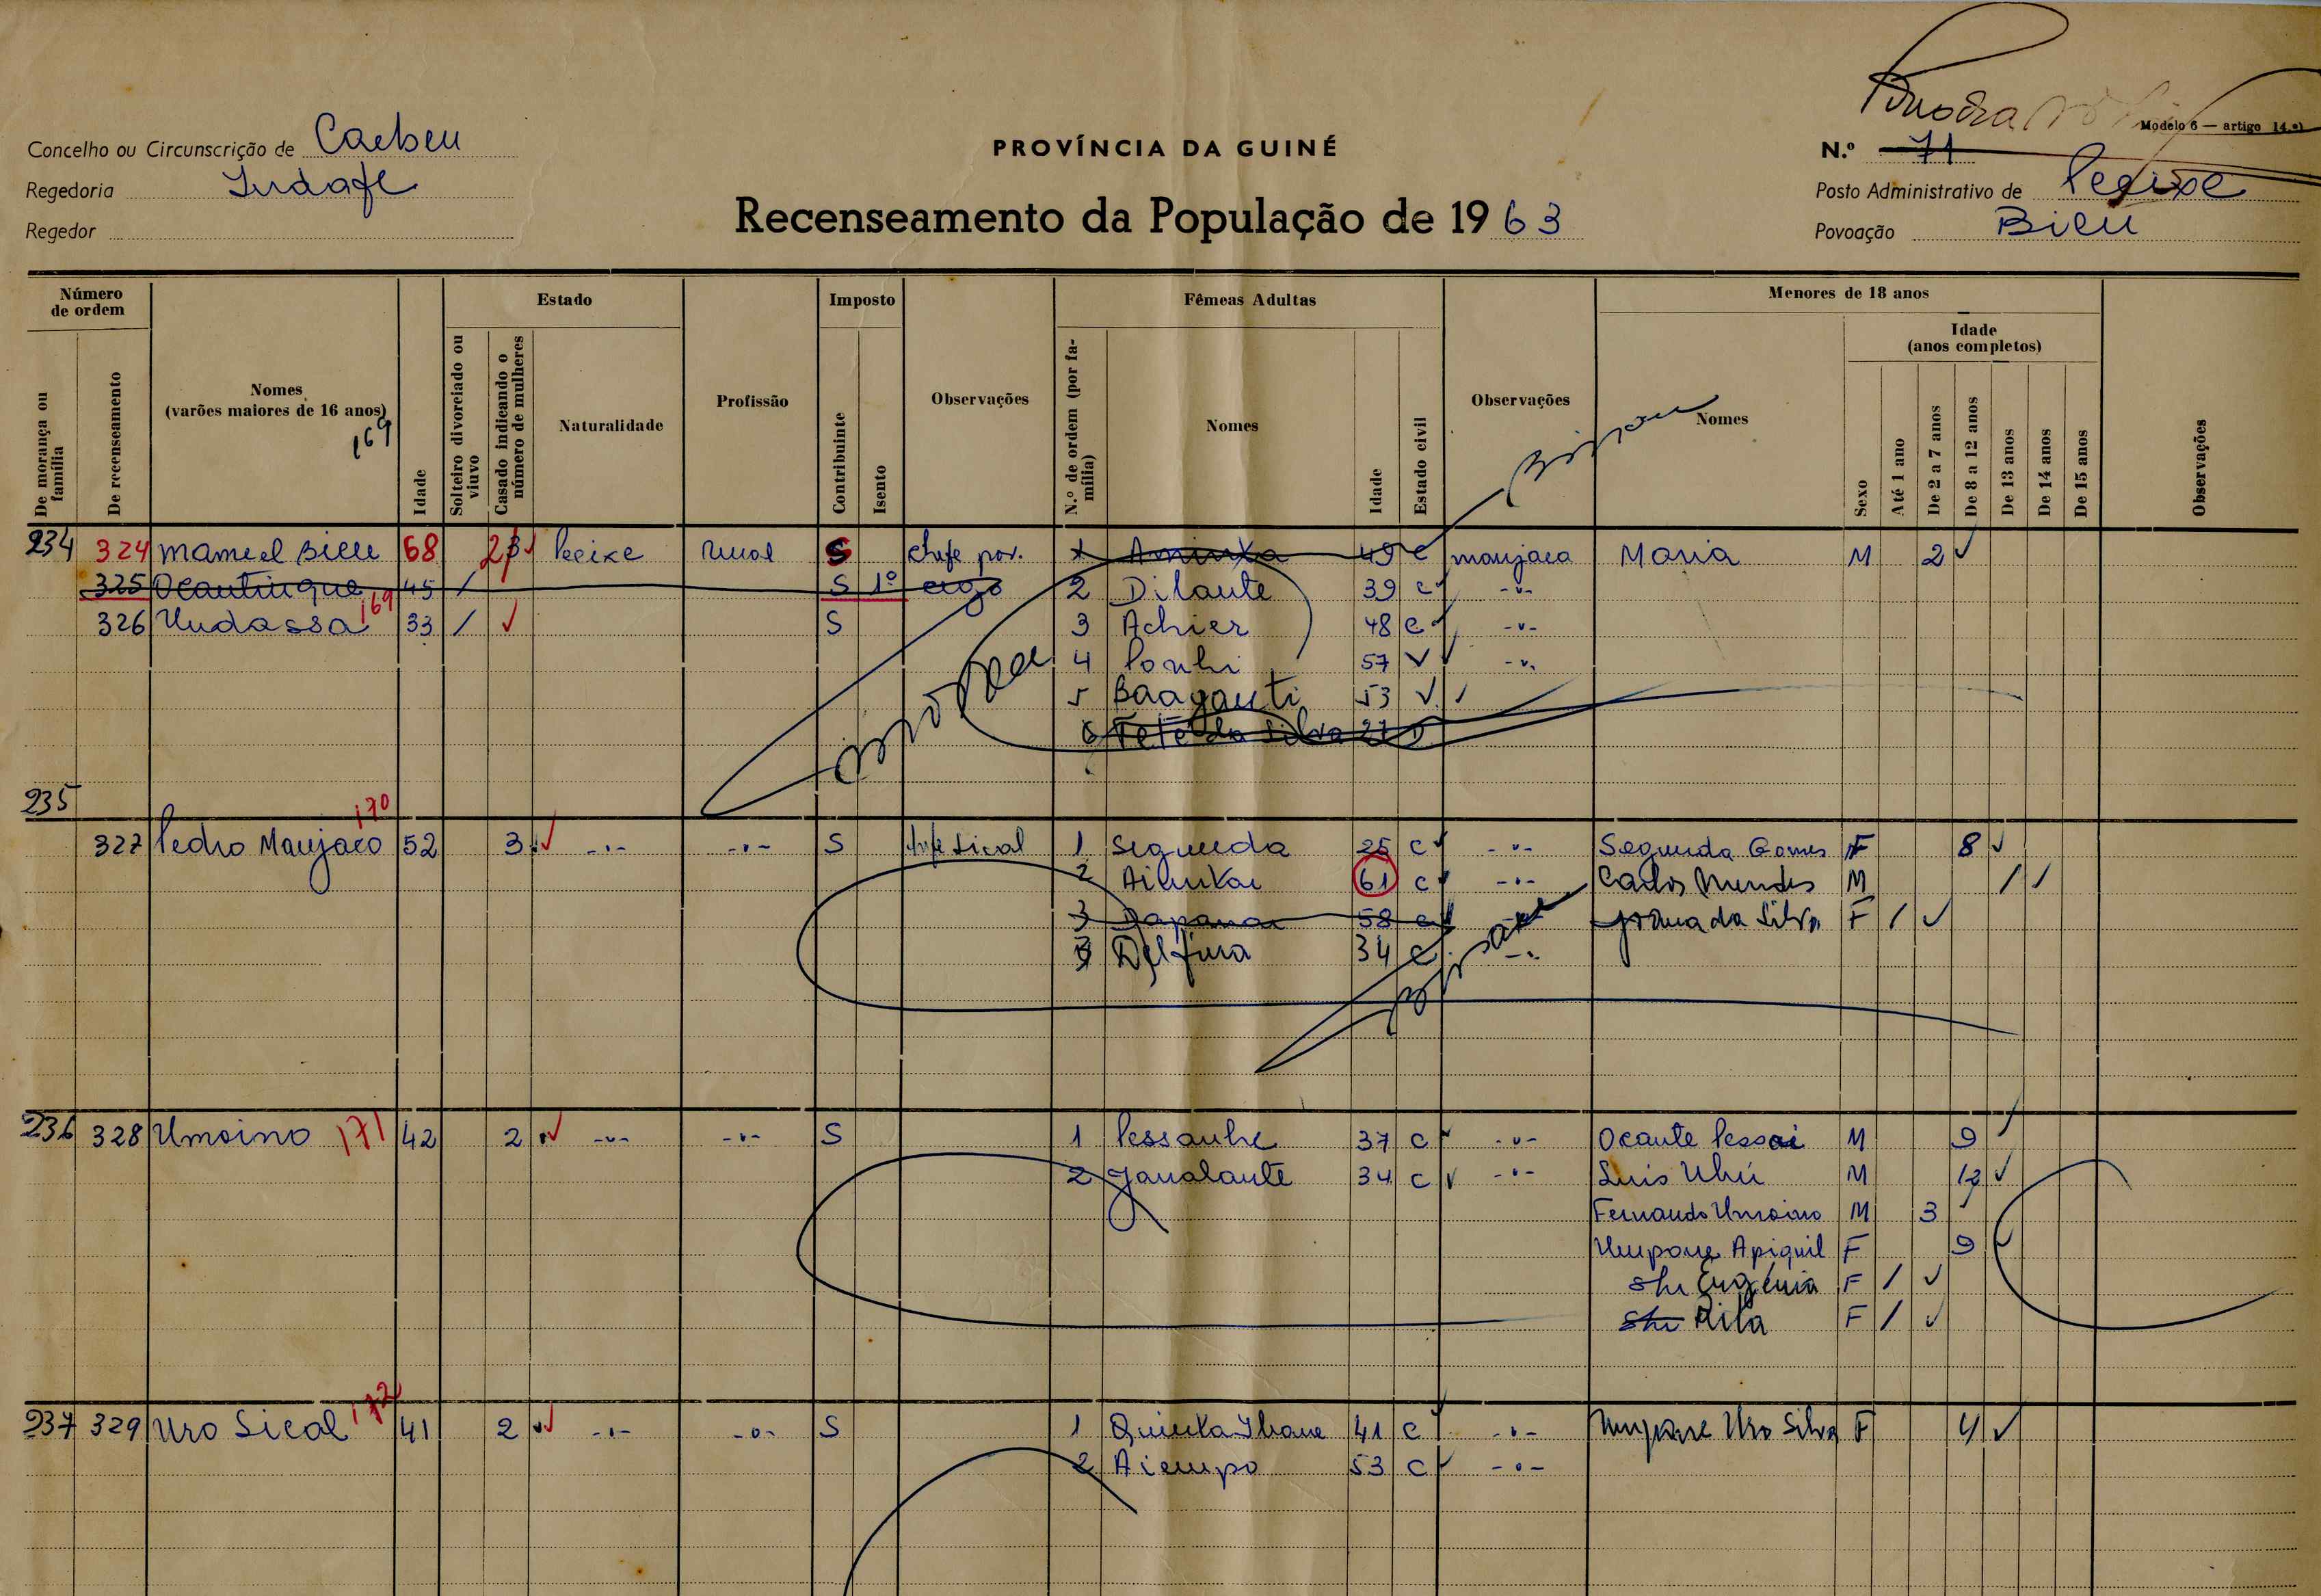 Modelo 6 — artigo 14.º)
Concelho ou Circunscrição de Caebeu
PROVÍNCIA DA GUINÉ
N.º 71
Regedoria Indafe
Posto Administrativo de Pecixe
Recenseamento da População de 1963
Regedor
Povoação Bieu
Número de ordem
Estado
Imposto
Fêmeas Adultas
Menores de 18 anos
De morança ou família
De recenseamento
Nomes (varões maiores de 16 anos)
169
Idade
Solteiro divorciado ou viuvo
Casado indicando o número de mulheres
Naturalidade
Profissão
Contribuinte
Isento
Observações
N.º de ordem (por família)
Nomes
Idade
Estado civil
Observações
Nomes
Sexo
Idade (anos completos)
Até 1 ano
De 2 a 7 anos
De 8 a 12 anos
De 13 anos
De 14 anos
De 15 anos
Observações
234 324 Manuel Bieu 68 Pecixe Rural S Chefe pov. 1 49 C manjaca Maria M 2
325 Ocantinque 45 / S 1º cego 2 Dilante 39 C -"-
326 Undassa 169 33 / S 3 Achier 48 C -"-
4 57 V -"-
5 Baaganti 53 V
6 Fefe da Silva 27
235
327 Pedro Manjaco 170 52 3 -"- -"- S 1 Segunda 25 C -"- Segunda Gomes F 8
2 61 C -"- Carlos Mendes M /
3 Dapanai 58 C Joana da Silva F /
3 Delfina 34 C -"-
236 328 Umoino 171 42 2 -"- -"- S 1 Pessanhe 37 C -"- Ocante Pessai M 9
2 Janalante 34 C -"- Luis Uhú M 12
Fernando Umoino M 3
Umpane Apiquil F 9
Eugénia F /
Rita F /
237 329 Uro Sical 172 41 2 -"- -"- S 1 Quinta Ihane 41 C -"- Umpane Uro Silva F 4
2 Aiempo 53 C -"-